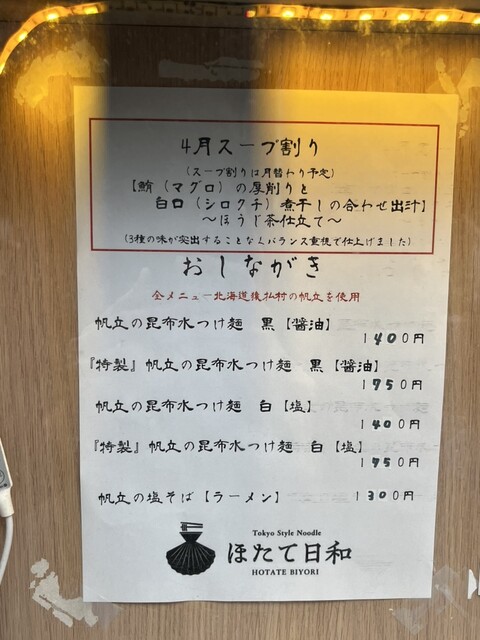 4月スープ割り
(スープ割りは月替わり予定)
【鮪(マグロ)の厚削りと
白口(シロクチ)煮干しの合わせ出汁】
〜ほうじ茶仕立て〜
(3種の味が突出することなくバランス重視で仕上げました)
おしながき
全メニュー北海道猿払村の帆立を使用
帆立の昆布水つけ麺 黒【醬油】
1400円
『特製』帆立の昆布水つけ麺 黒【醬油】
1950円
帆立の昆布水つけ麺 白【塩】
1400円
『特製』帆立の昆布水つけ麺 白【塩】
1950円
帆立の塩そば【ラーメン】 1300円
Tokyo Style Noodle
ほたて日和
HOTATE BIYORI